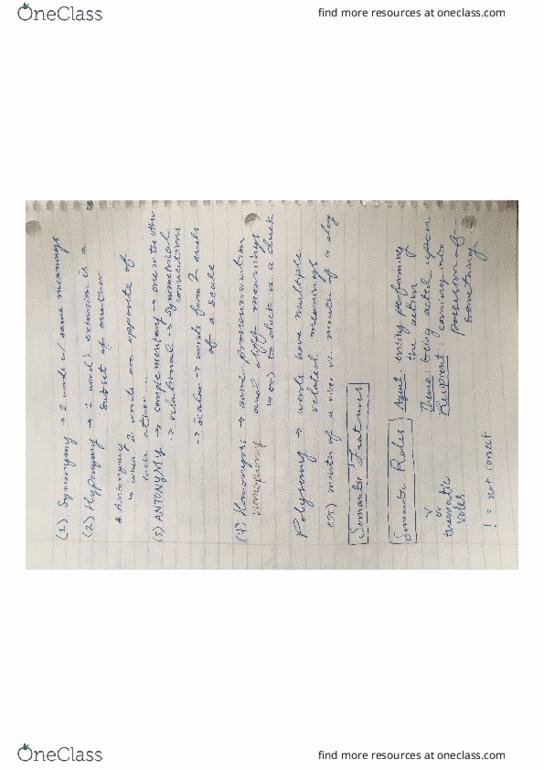 OneClass
find more resources at oneclass.com
(1) Synonymy → 2 words w/ same meanings
(2) Hyponymy → 1 word's extension is a
subset of another
* Antonymy
↳ when 2 words are opposite of
each other
(3) ANTONYMY → complementary → one or the other
→ relational → symmetrical
connections
→ scalar → words from 2 ends
of a scale
(4) Homonyms → same pronounciation
homophony and diff meanings
↳ ex) to duck vs a duck
Polysemy → words have multiple
related meanings
ex) mouth of a river vs. mouth of a dog
Semantic Features
Semantic Roles
or
thematic
roles
Agent: entity performing
the action
Theme: being acted upon
Recipient: coming into
possesion of
something
! = not correct
OneClass
find more resources at oneclass.com